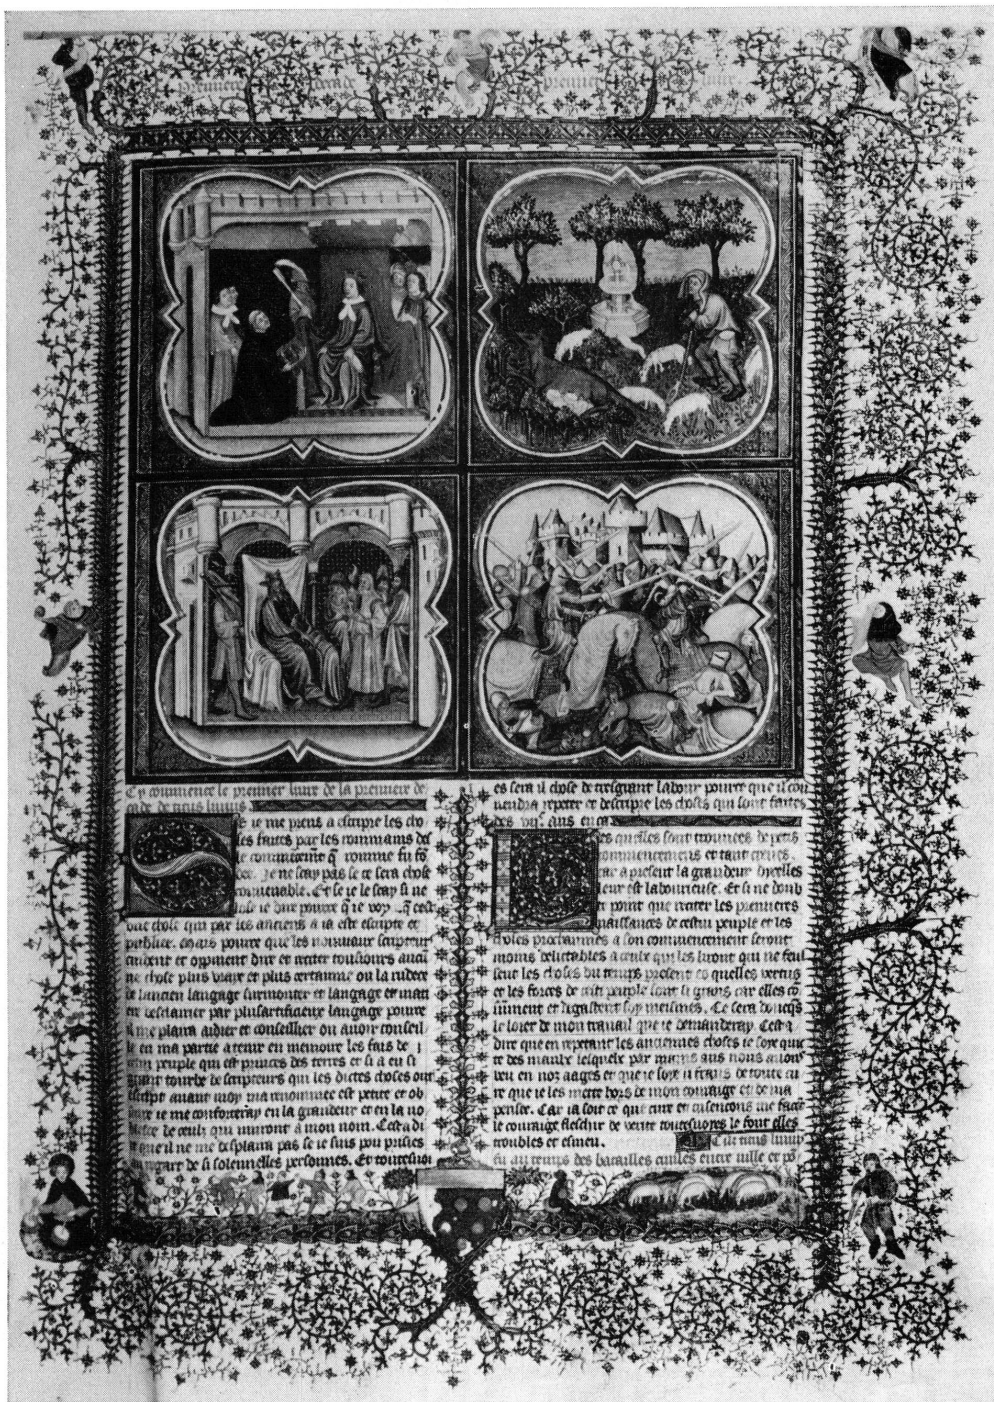 premiere decade premier livre
Cy commence le premier livre de la premiere de
cade de titus livius
Se ie me prens a escripre les cho
ses faites par les rommains des
le commencement q̄ romme fu fo
dee. Je ne scay pas se ce sera chose
convenable. Et se ie le scay si ne
lose ie dire pource q̄ ie voy q̄ cest
une chose qui par les anciens a ia este escripte et
publiee. Mais pource que les nouviaux scripteurs
cuident et oppinent dire et reciter tousiours aucū
ne chose plus vraie et plus certainne ou la rudece
de lancien langage surmonter et langage et mati
ere desclairier par plus artificieux langage pource
il me plaira aidier et conseillier ou avoir conseil
le en ma partie a tenir en memoire les fais de
peuple qui est princes des terres et si a eu si
grant tourbe de scripteurs qui les dictes choses ont
escript avant moy ma renommee est petite et ob
scure ie me conforteray en la grandeur et en la no
blesce de ceulx qui nuiront a mon nom. Cest a di
re quil ne me desplaira pas se ie suis pou prisies
au regart de si solennelles personnes. Et toutesvoi
es sera il chose de tresgrant labour pource que il con
viendra repeter et descripre les choses qui sont faites
des vijᶜ ans en ca
les quelles sont trouvees de petis
commencemens et tant creues
car a present la grandeur dicelles
leur est labourieuse. Et si ne doub
te point que reciter les premieres
naissances de cestui peuple et les
choses prochainnes a son commencement seront
moins delictables a ceulx qui les liront qui ne feus
sent les choses du temps present es quelles vertus
et les forces de cesti peuple sont si grans car elles cō
sument et degastent soy meismes. Ce sera doncqs
le loier de mon travail que ie demanderay. Cest a
dire que en repetant les anciennes choses ie soye quic
te des maulx lesquelx par mains ans nous avons
veu en noz aages et que ie soye si frans de toute cu
re que ie les mette hors de mon courage et de ma
pensee. Car ia soit ce que cure et cusencons me facēt
le courage flechir de verite toutesvoyes le font elles
troubles et esmeu. Cist titus livius
fu au temps des batailles civiles entre iulle et pō